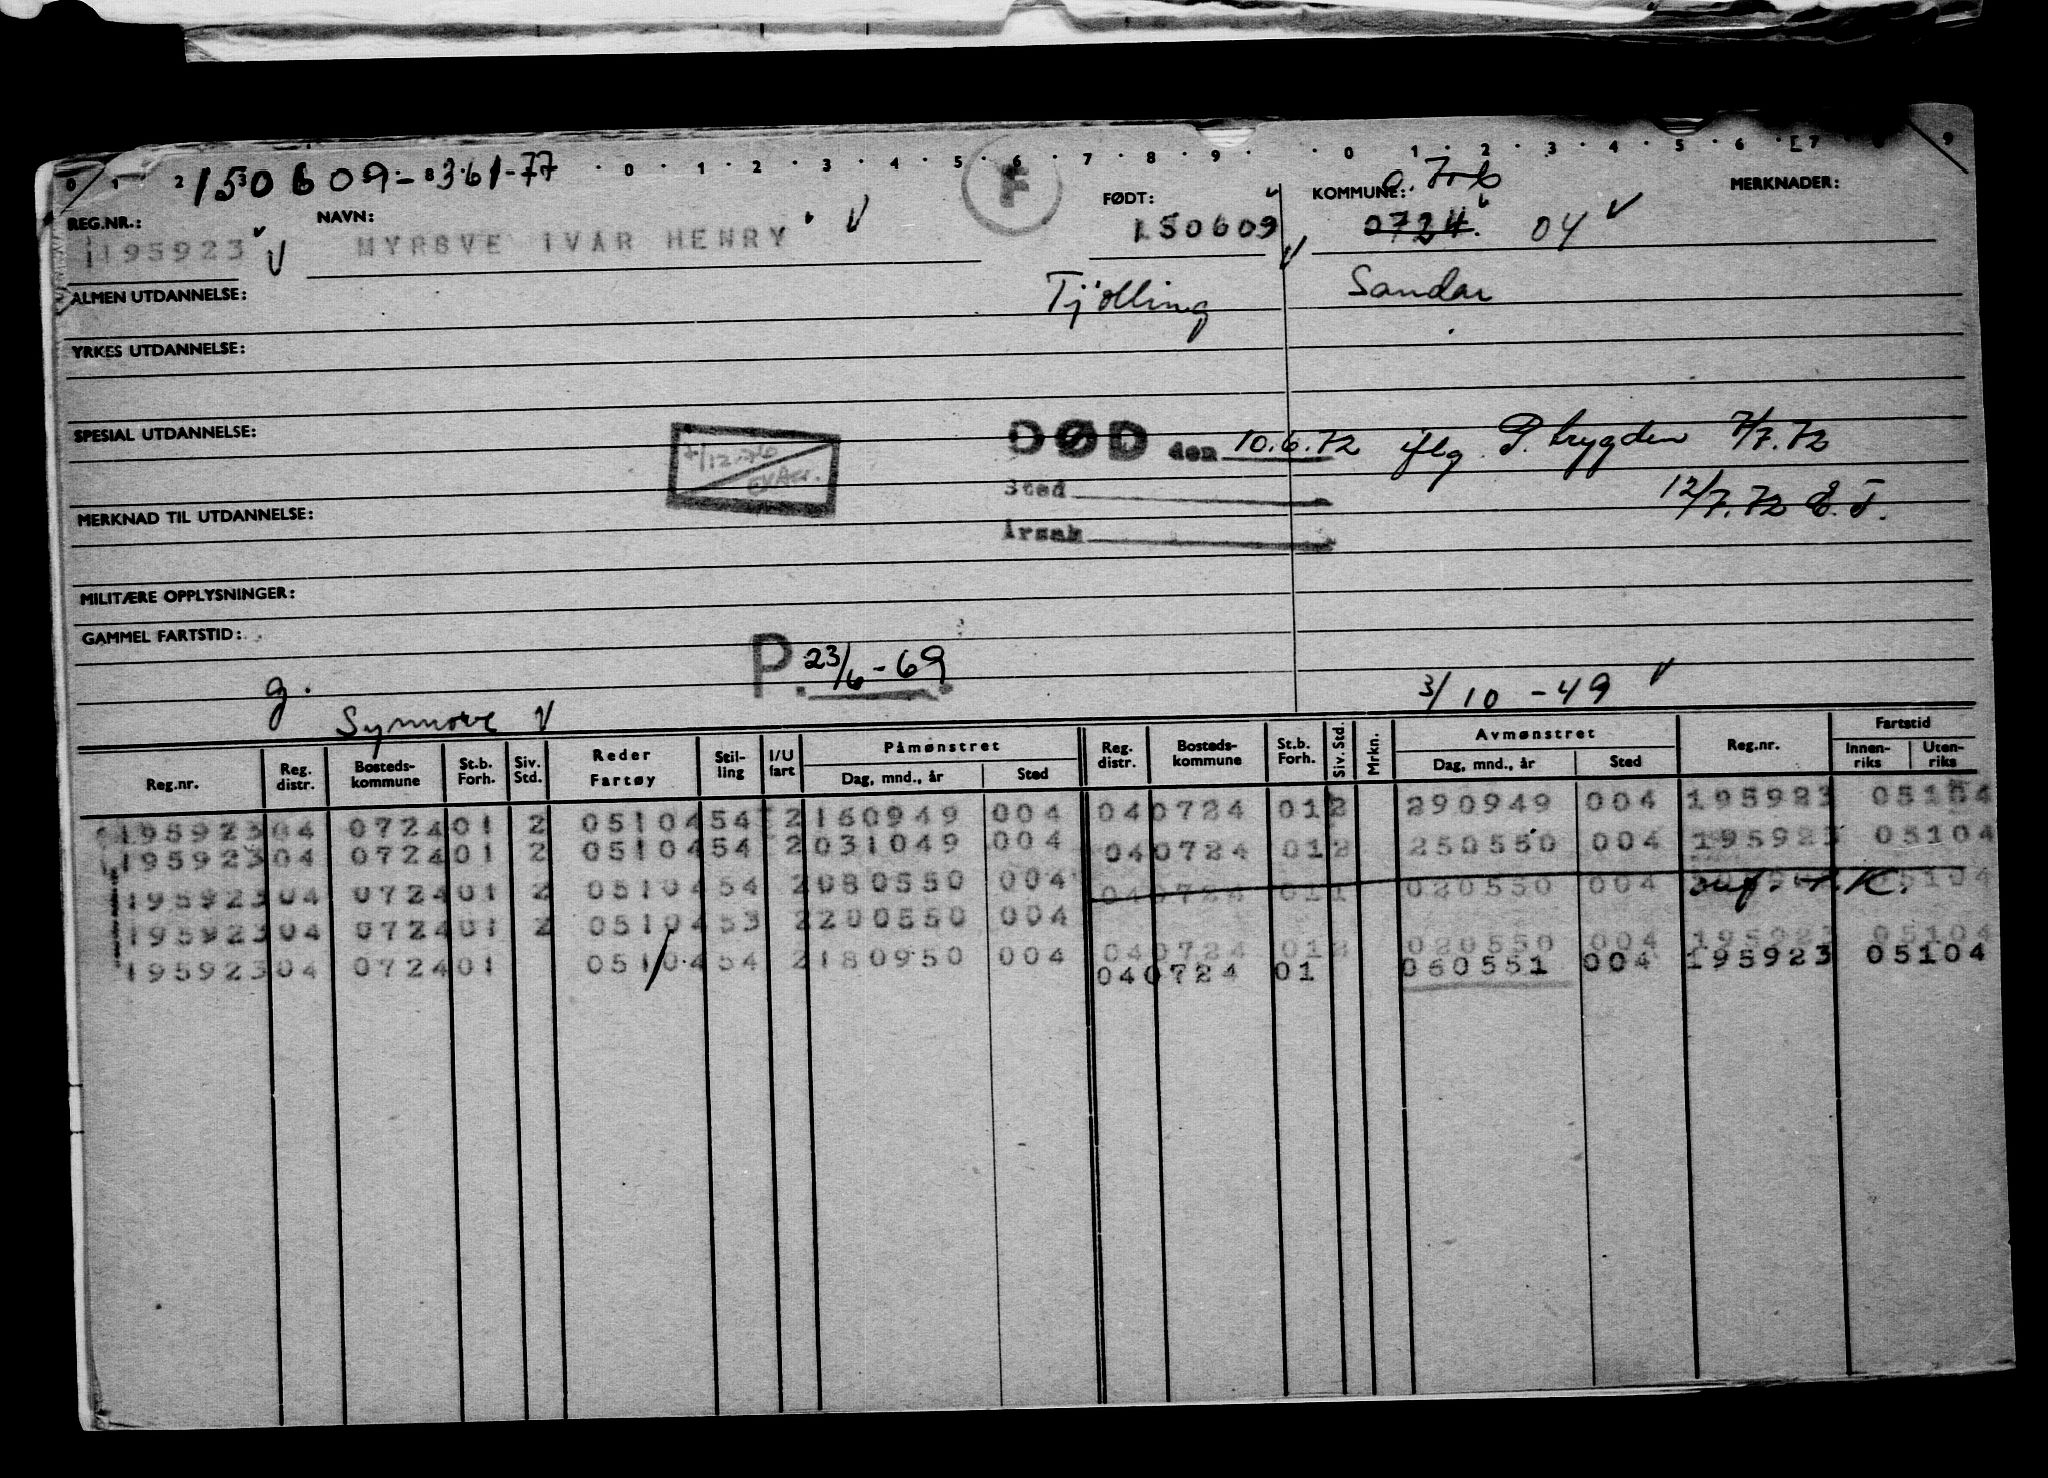 0 1 2 3 · 8 · · 0 · 1 · 2 · 3 · 4 · 5 · 6 · 7 · 8 · 9 · · 0 · 1 · 2 · 3 · 4 · 5 · 6 · 7 9
150609-361-77
F
REG.NR.: NAVN: FØDT: KOMMUNE: 0706 MERKNADER:
195923 V MYRSVE IVAR HENRY V 150609 V 0724. 04 V
ALMEN UTDANNELSE: Tjölling Sandar
YRKES UTDANNELSE:
SPESIAL UTDANNELSE: DØD den 10.6.72 iflg. P. trygden 7/7.72
7/12-76
Sted 12/7.72 E.T.
MERKNAD TIL UTDANNELSE:
Årsak
MILITÆRE OPPLYSNINGER:
GAMMEL FARTSTID: P. 23/6-69
g. 3/10-49 V
Synnøve V
Reg.nr. Reg. distr. Bosteds-kommune St.b. Forh. Siv. Std. Reder Fartøy Stil-ling I/U fart Påmønstret Dag, mnd., år Sted Reg. distr. Bosteds-kommune St.b. Forh. Siv. Std. Mrkn. Avmønstret Dag, mnd., år Sted Reg.nr. Fartstid Innen-riks Uten-riks
195923 04 0724 01 2 05104 54 2 160949 004 04 0724 01 2 290949 004 195923 05104
195923 04 0724 01 2 05104 54 2 031049 004 04 0724 01 2 250550 004 195923 05104
195923 04 0724 01 2 05104 54 2 080550 004 04 0724 01 1 020550 004 05104
195923 04 0724 01 2 05104 53 2 200550 004 04 0724 01 2 020550 004 195923 05104
195923 04 0724 01 05104 54 2 180950 004 04 0724 01 060551 004 195923 05104